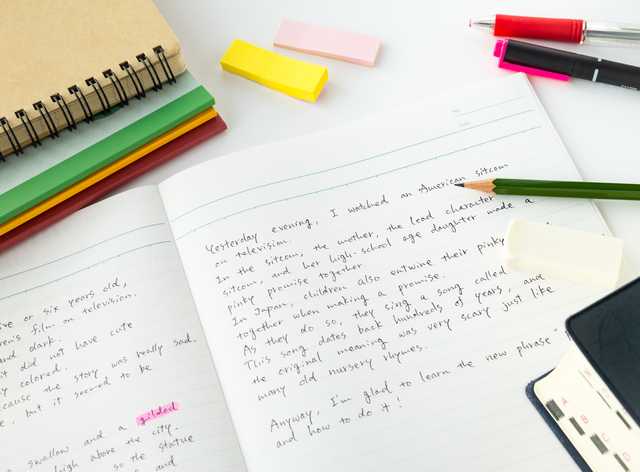 ve or six years old,
ren's film on television.
nd dark.
it did not have cute
y colored.
cause the story was really sad.
e, but it seemed to be
swallow and a gilded
high above the city.
so the statue
and
No.
Date
Yesterday evening, I watched an American sitcom
on television.
In the sitcom, the mother, the lead character
sitcom, and her high-school age daughter made a
pinky promise together.
In Japan, children also entwine their pinky
together when making a promise.
As they do so, they sing a song called
This song dates back hundreds of years, and
the original meaning was very scary just like
many old nursery rhymes.
Anyway, I'm glad to learn the new phrase "
and how to do it!
A
B
C
D